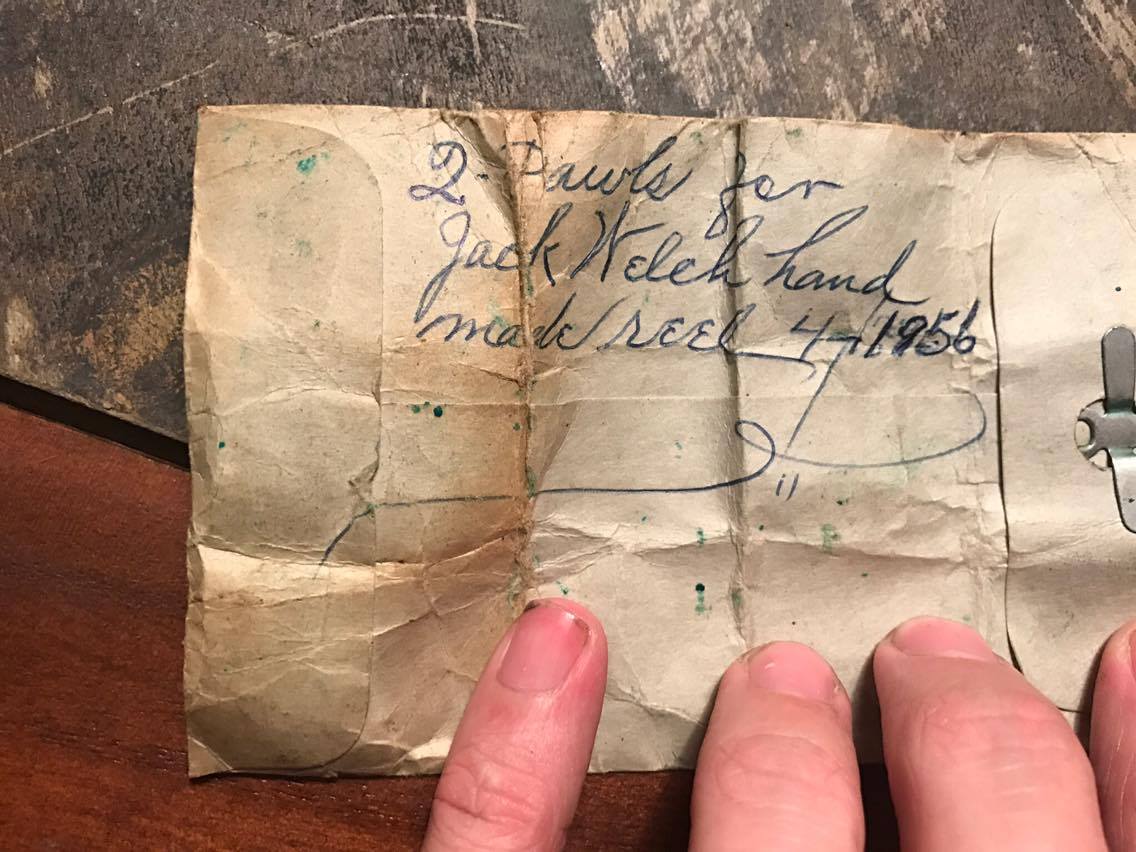 2-Pawls for
Jack Welch hand
made reel 4/1956